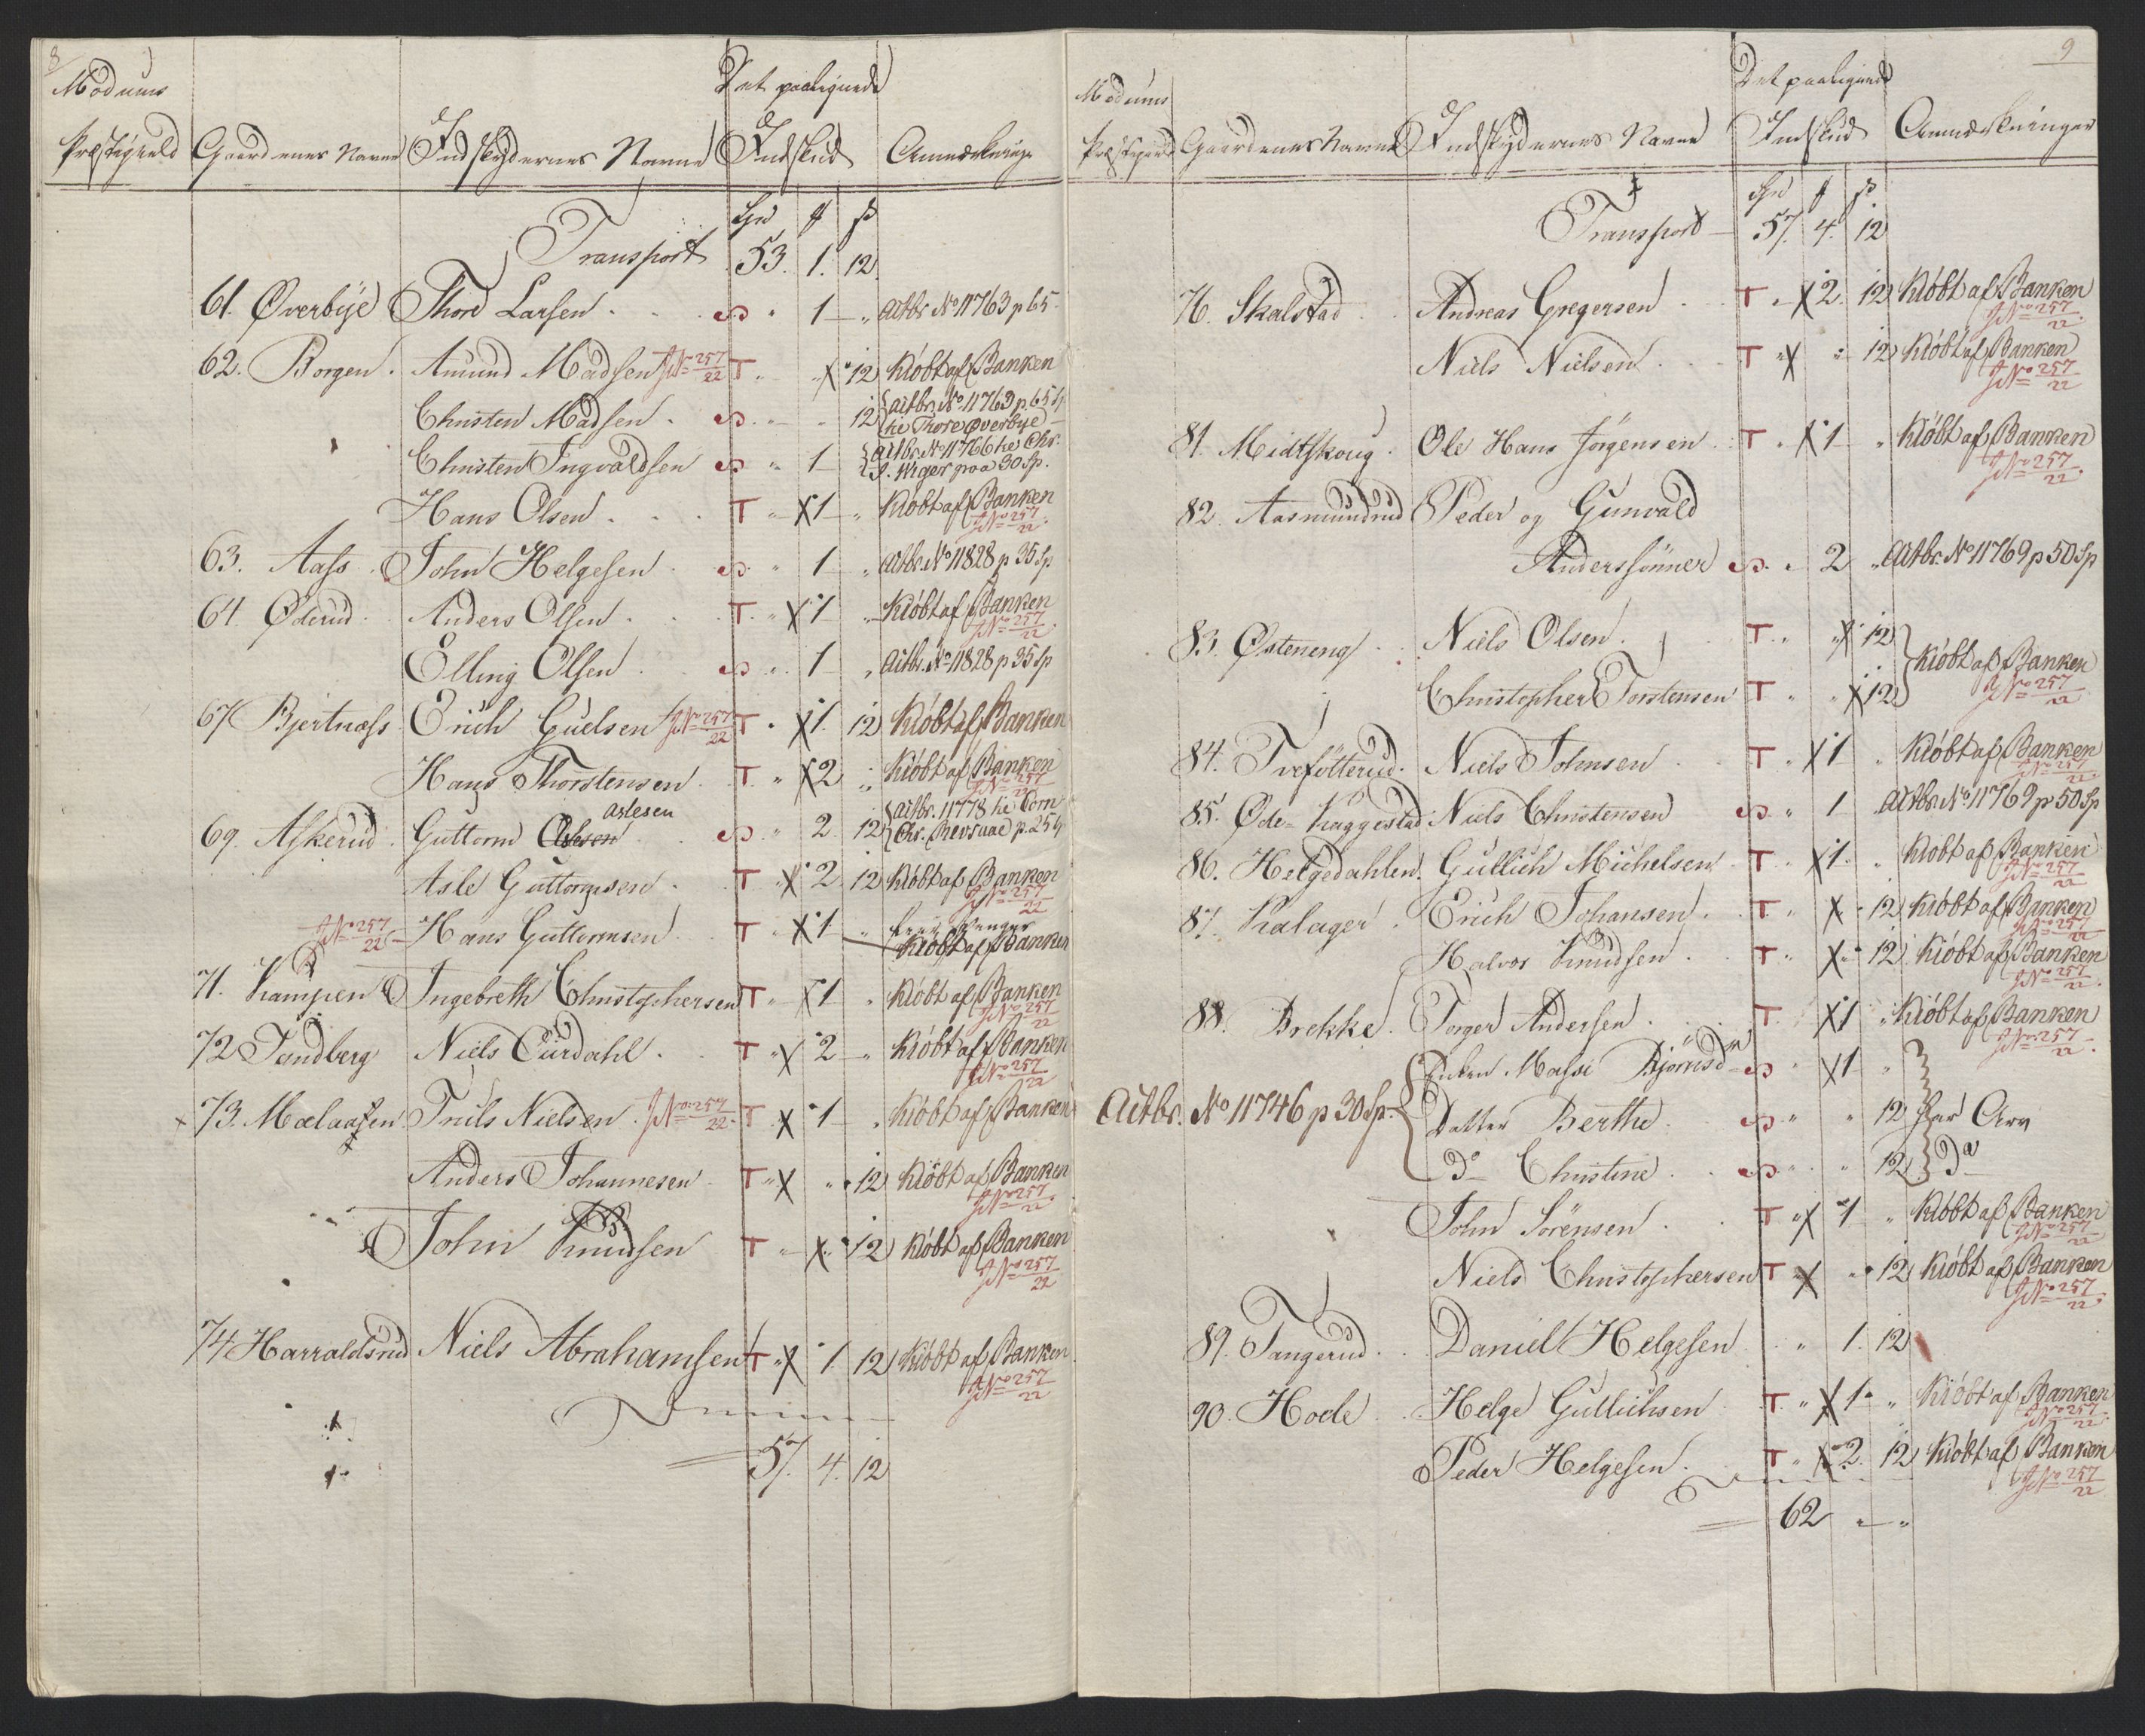 8
Modums
Præstegjeld
Gaardenes Navne
Indskydernes Navne
Det paalignede
Indskud
Anmærkninger
Transport 53. 1. 12
61. Øverbÿe Thore Larsen 1 Actbr. No 11763 p 65
62. Borgen Amund Madsen JNo 257/22 T X 12 Kiöbt af Banken
Christen Madsen 12 Actbr. No 11763 p. 65 Sp
he Thore Øverbye
Christen Ingvaldsen 1 Actbr. No 11766 he Chr.
J. Wiger paa 30 Sp.
Hans Olsen T X 1 Kiöbt af Banken
JNo 257/22
63. Aass John Helgesen 1 Actbr. No 11828 p 35 Sp
64. Øderud Anders Olsen T X 1 Kiöbt af Banken
JNo 257/22
Elling Olsen 1 Actbr. No 11828 p 35 Sp
67 Bjertnæss Erich Guelsen JNo 257/22 T X 1. 12 Kiöbt af Banken
Hans Thorstensen T X 2 Kiöbt af Banken
JNo 257/22
aslesen
69. Askerud Guttorm 2 12 Actbr. 11778 he Corn
Chr. p. 25 Sp
Asle Guttormsen T X 2 12 Kiöbt af Banken
JNo 257/22
JNo 257/22 Hans Guttormsen T X 1
Kiöbt af Banken
71. Kampen Ingebreth Christophersen T X 1 Kiöbt af Banken
JNo 257/22
72 Tandberg Niels Cürdahl T X 2 Kiöbt af Banken
JNo 257/22
73. Mælaasen Truls Nielsen JNo 257/22 T X 1 Kiöbt af Banken
Anders Johannesen T X 12 Kiöbt af Banken
JNo 257/22
John Knudsen T X 12 Kiöbt af Banken
JNo 257/22
74 Harraldsrud Niels Abrahamsen T X 1. 12 Kiöbt af Banken
JNo 257/22
57. 4. 12
9
Modums
Præstegjeld
Gaardenes Navne
Indskydernes Navne
Det paalignede
Indskud
Anmærkninger
Transport 57. 4. 12
76. Skalstad Andreas Gregersen T X 2 12 Kiöbt af Banken
JNo 257/22
Niels Nielsen T X 12 Kiöbt af Banken
JNo 257/22
81. Midtskoug Ole Hans Jörgensen T X 1 Kiöbt af Banken
JNo 257/22
82. Aasmundrud Peder og Gunvald
Anderssönner 2 Actbr. No 11769 p 50 Sp
83. Østeneng Niels Olsen T X 12
Kiöbt af Banken
Christopher Torstensen T X 12 JNo 257/22
84. Tvefötterud Niels Johnsen T X 1 Kiöbt af Banken
JNo 257/22
85. Øde-Kaggestad Niels Christensen 1 Actbr. No 11769 p 50 Sp
86. Helgedahlen Gullich Michelsen T X 1 Kiöbt af Banken
JNo 257/22
87. Kalager Erich Johansen T X 12 Kiöbt af Banken
JNo 257/22
Halvor Knudsen T X 12 Kiöbt af Banken
JNo 257/22
88. Brekke Torger Andersen T X 1 Kiöbt af Banken
JNo 257/22
Enken Massi Bjørnsd X 1
Actbr. No 11746 p 30 Sp. Datter Berthe 12 har Arv
Do Christine 12 Do
John Sörensen T X 1 Kiöbt af Banken
JNo 257/22
Niels Christophersen T X 12 Kiöbt af Banken
JNo 257/22
89. Tangerud Daniel Helgesen 1. 12
90. Hoele Helge Gullichsen T X 1 Kiöbt af Banken
JNo 257/22
Peder Helgesen T X 2. 12 Kiöbt af Banken
JNo 257/22
62